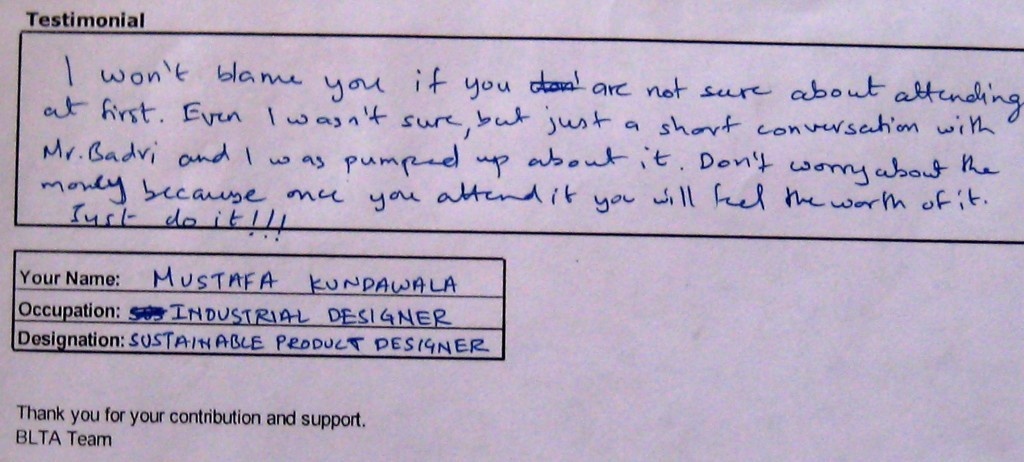 Testimonial
I won't blame you if you don't are not sure about attending
at first. Even I wasn't sure, but just a short conversation with
Mr. Badri and I was pumped up about it. Don't worry about the
money because once you attend it you will feel the worth of it.
Just do it!!!
Your Name: MUSTAFA KUNDAWALA
Occupation: INDUSTRIAL DESIGNER
Designation: SUSTAINABLE PRODUCT DESIGNER
Thank you for your contribution and support.
BLTA Team